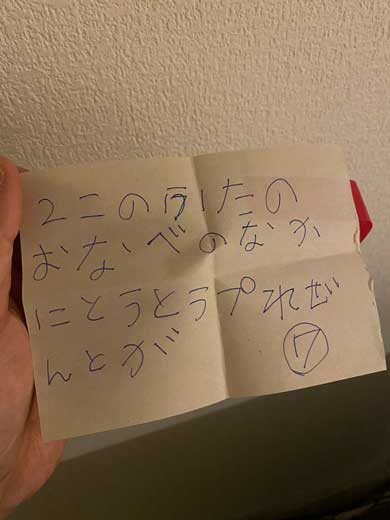 2このふたの
おなべのなか
にとうとうプれぜ
んとが ⑦